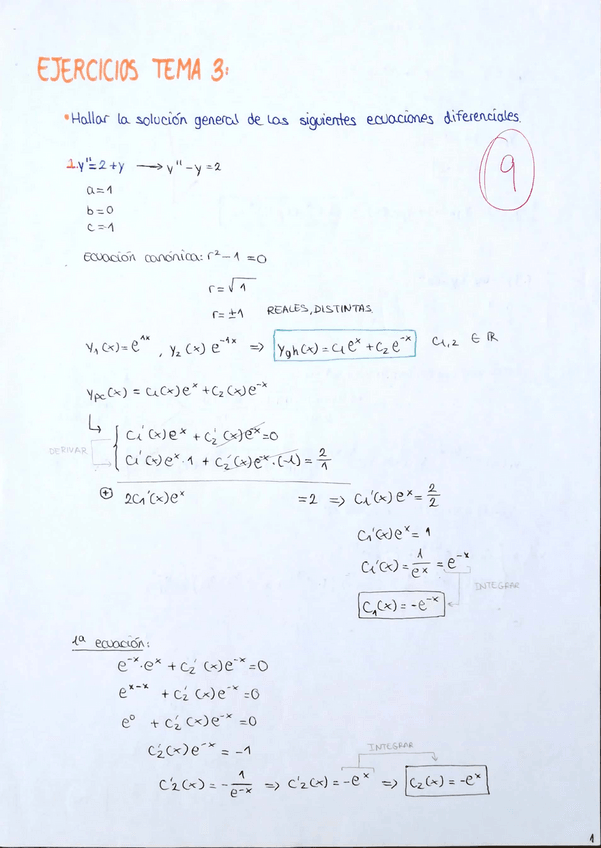 EJERCICIOS TEMA 3:
• Hallar la solución general de las siguientes ecuaciones diferenciales.
9
1. y'' = 2 + y ⟶ y'' - y = 2
a = 1
b = 0
c = -1
Ecuación canónica: r² - 1 = 0
r = √1
r = ±1 REALES, DISTINTAS.
y₁(x) = e^{1x}, y₂(x) e^{-1x} ⇒ y_{gh}(x) = c₁e^x + c₂e^{-x} C₁,₂ ∈ ℝ
y_{pc}(x) = c₁(x)e^x + c₂(x)e^{-x}
c₁'(x)e^x + c₂'(x)e^{-x} = 0
DERIVAR
c₁'(x)e^x · 1 + c₂'(x)e^{-x} · (-1) = 2/1
⊕ 2c₁'(x)e^x = 2 ⇒ c₁'(x)e^x = 2/2
c₁'(x)e^x = 1
c₁'(x) = 1/e^x = e^{-x}
INTEGRAR
c₁(x) = -e^{-x}
1ª ecuación:
e^{-x} · e^x + c₂'(x)e^{-x} = 0
e^{x-x} + c₂'(x)e^{-x} = 0
e⁰ + c₂'(x)e^{-x} = 0
c₂'(x)e^{-x} = -1
INTEGRAR
c'₂(x) = -1/e^{-x} ⇒ c'₂(x) = -e^x ⇒ c₂(x) = -e^x
1